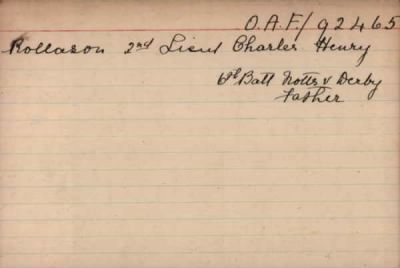 O.A.F/92465
Rollason 2nd Lieut Charles Henry
6th Batt Notts & Derby
Father